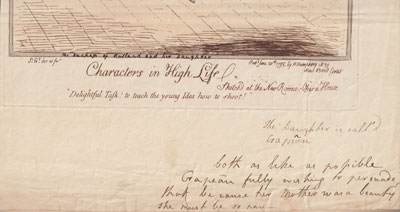 The Duchess of Rutland and her Daughter
Js. Gy. des et fect
Pubd. June 20th 1795, by H. Humphrey No 37
New Bond Street
Characters in High Life.
Sketch'd at the New Rooms. Opera House
"Delightful Task! to teach the young Idea how to shoot!"
The Daughter is call'd
Crapeau
both as like as possible
Crapeau fully wishing to persuade
that because her Mother was a beauty
she must be so now—